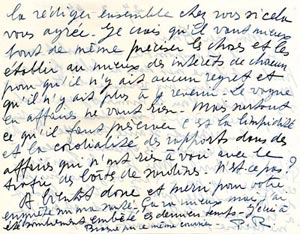 la rédiger ensemble chez vous si cela
vous agrée. Je crois qu'il vaut mieux
tout de même préciser les choses et les
établir au mieux des intérêts de chacun
pour qu'il n'y ait aucun regret et
qu'il n'y ait plus à y revenir. Le vague
en affaires ne vaut rien. Mais surtout
ce qu'il faut préserver c'est la limpidité
et la cordialité des rapports dans des
affaires qui n'ont rien à voir avec le
trafic de boîtes de sardines. N'est-ce pas ?
A bientôt donc et merci pour votre
enquête sur ma santé. Ça va mieux mais j'ai
été embêté ces derniers temps